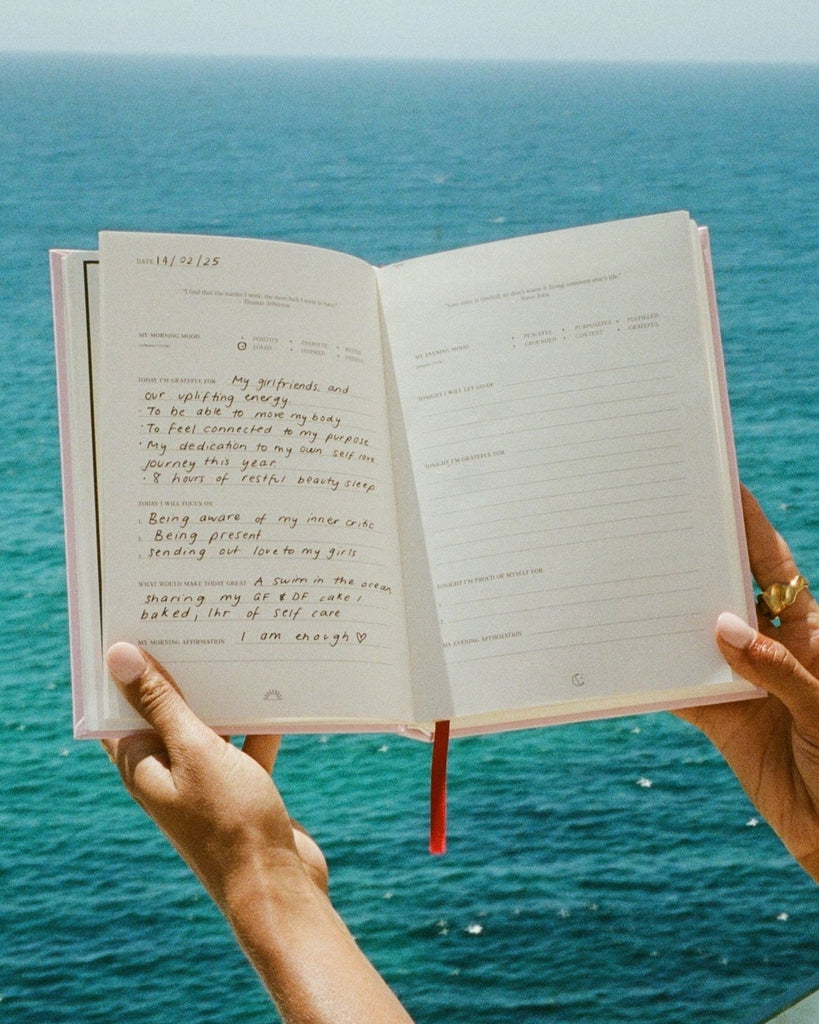 DATE 14/02/25
"I find that the harder I work, the more luck I seem to have."
Thomas Jefferson
MY MORNING MOOD
POSITIVE ENERGETIC RESTED
LOVED INSPIRED
TODAY I'M GRATEFUL FOR My girlfriends, and
our uplifting energy
· To be able to move my body
· To feel connected to my purpose
· My dedication to my own self love
journey this year
· 8 hours of restful beauty sleep
TODAY I WILL FOCUS ON
1. Being aware of my inner critic
2. Being present
3. sending out love to my girls
WHAT WOULD MAKE TODAY GREAT A swim in the ocean,
sharing my GF & DF cake I
baked, 1hr of self care
MY MORNING AFFIRMATION I am enough ♡
"Your time is limited, so don't waste it living someone else's life."
Steve Jobs
MY EVENING MOOD
PEACEFUL PURPOSEFUL FULFILLED
GROUNDED CONTENT GRATEFUL
TONIGHT I WILL LET GO OF
TONIGHT I'M GRATEFUL FOR
TONIGHT I'M PROUD OF MYSELF FOR
1.
2.
MY EVENING AFFIRMATION